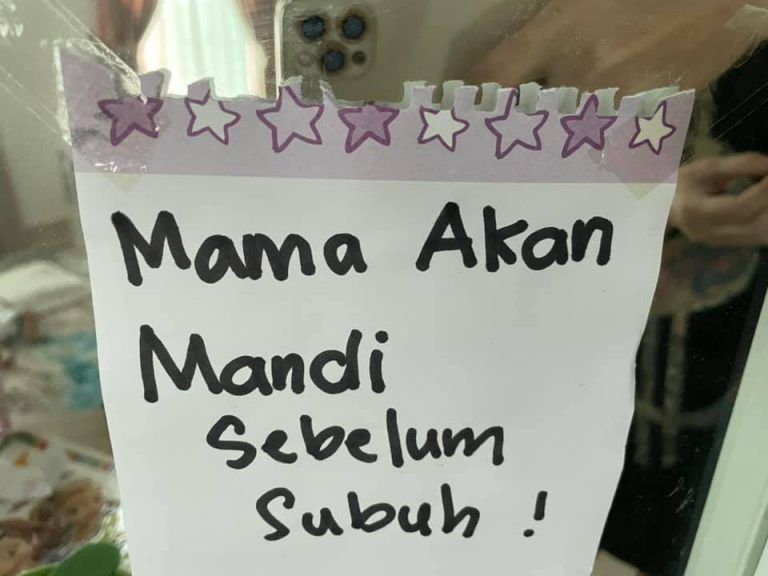 Mama Akan
Mandi
Sebelum
Subuh !